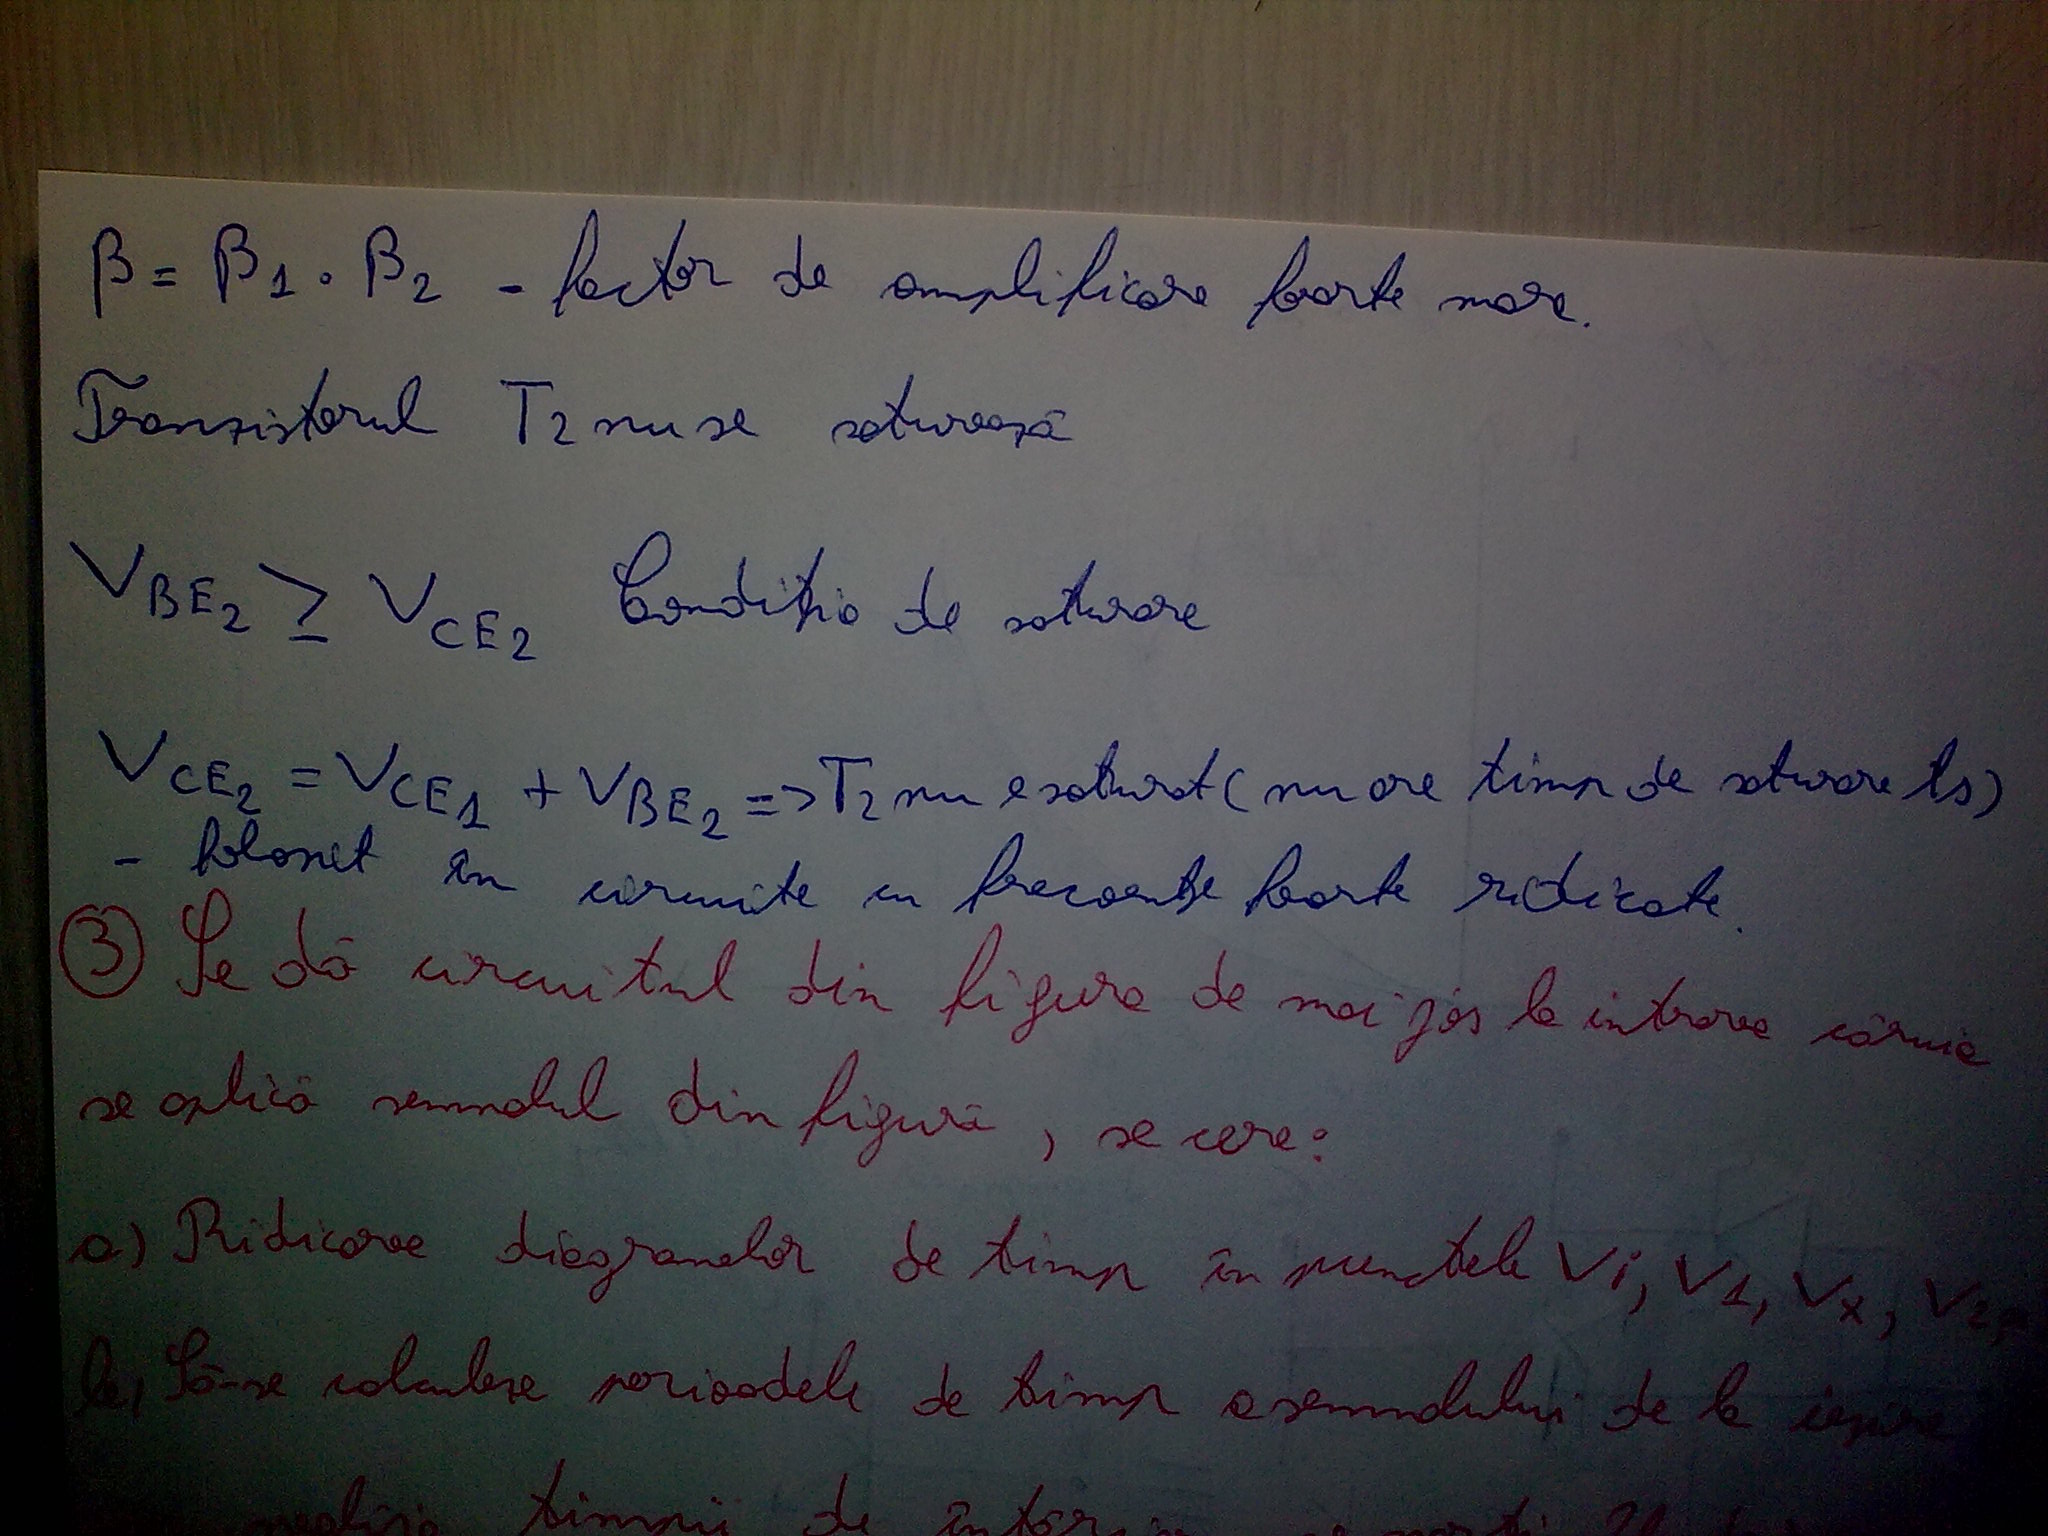 β = β1 · β2 - factor de amplificare foarte mare.
Tranzistorul T2 nu se saturează
VBE2 ≥ VCE2 Condiția de saturare
VCE2 = VCE1 + VBE2 => T2 nu e saturat (nu are timp de saturare ts)
- folosit în circuite cu frecvențe foarte ridicate.
3 Se dă circuitul din figura de mai jos la intrarea căruia
se aplică semnalul din figură, se cere:
a) Ridicarea diagramelor de timp în punctele Vi, V1, Vx, V2,
b, Să-se calculeze perioadele de timp a semnalului de la ieșire
timpii de